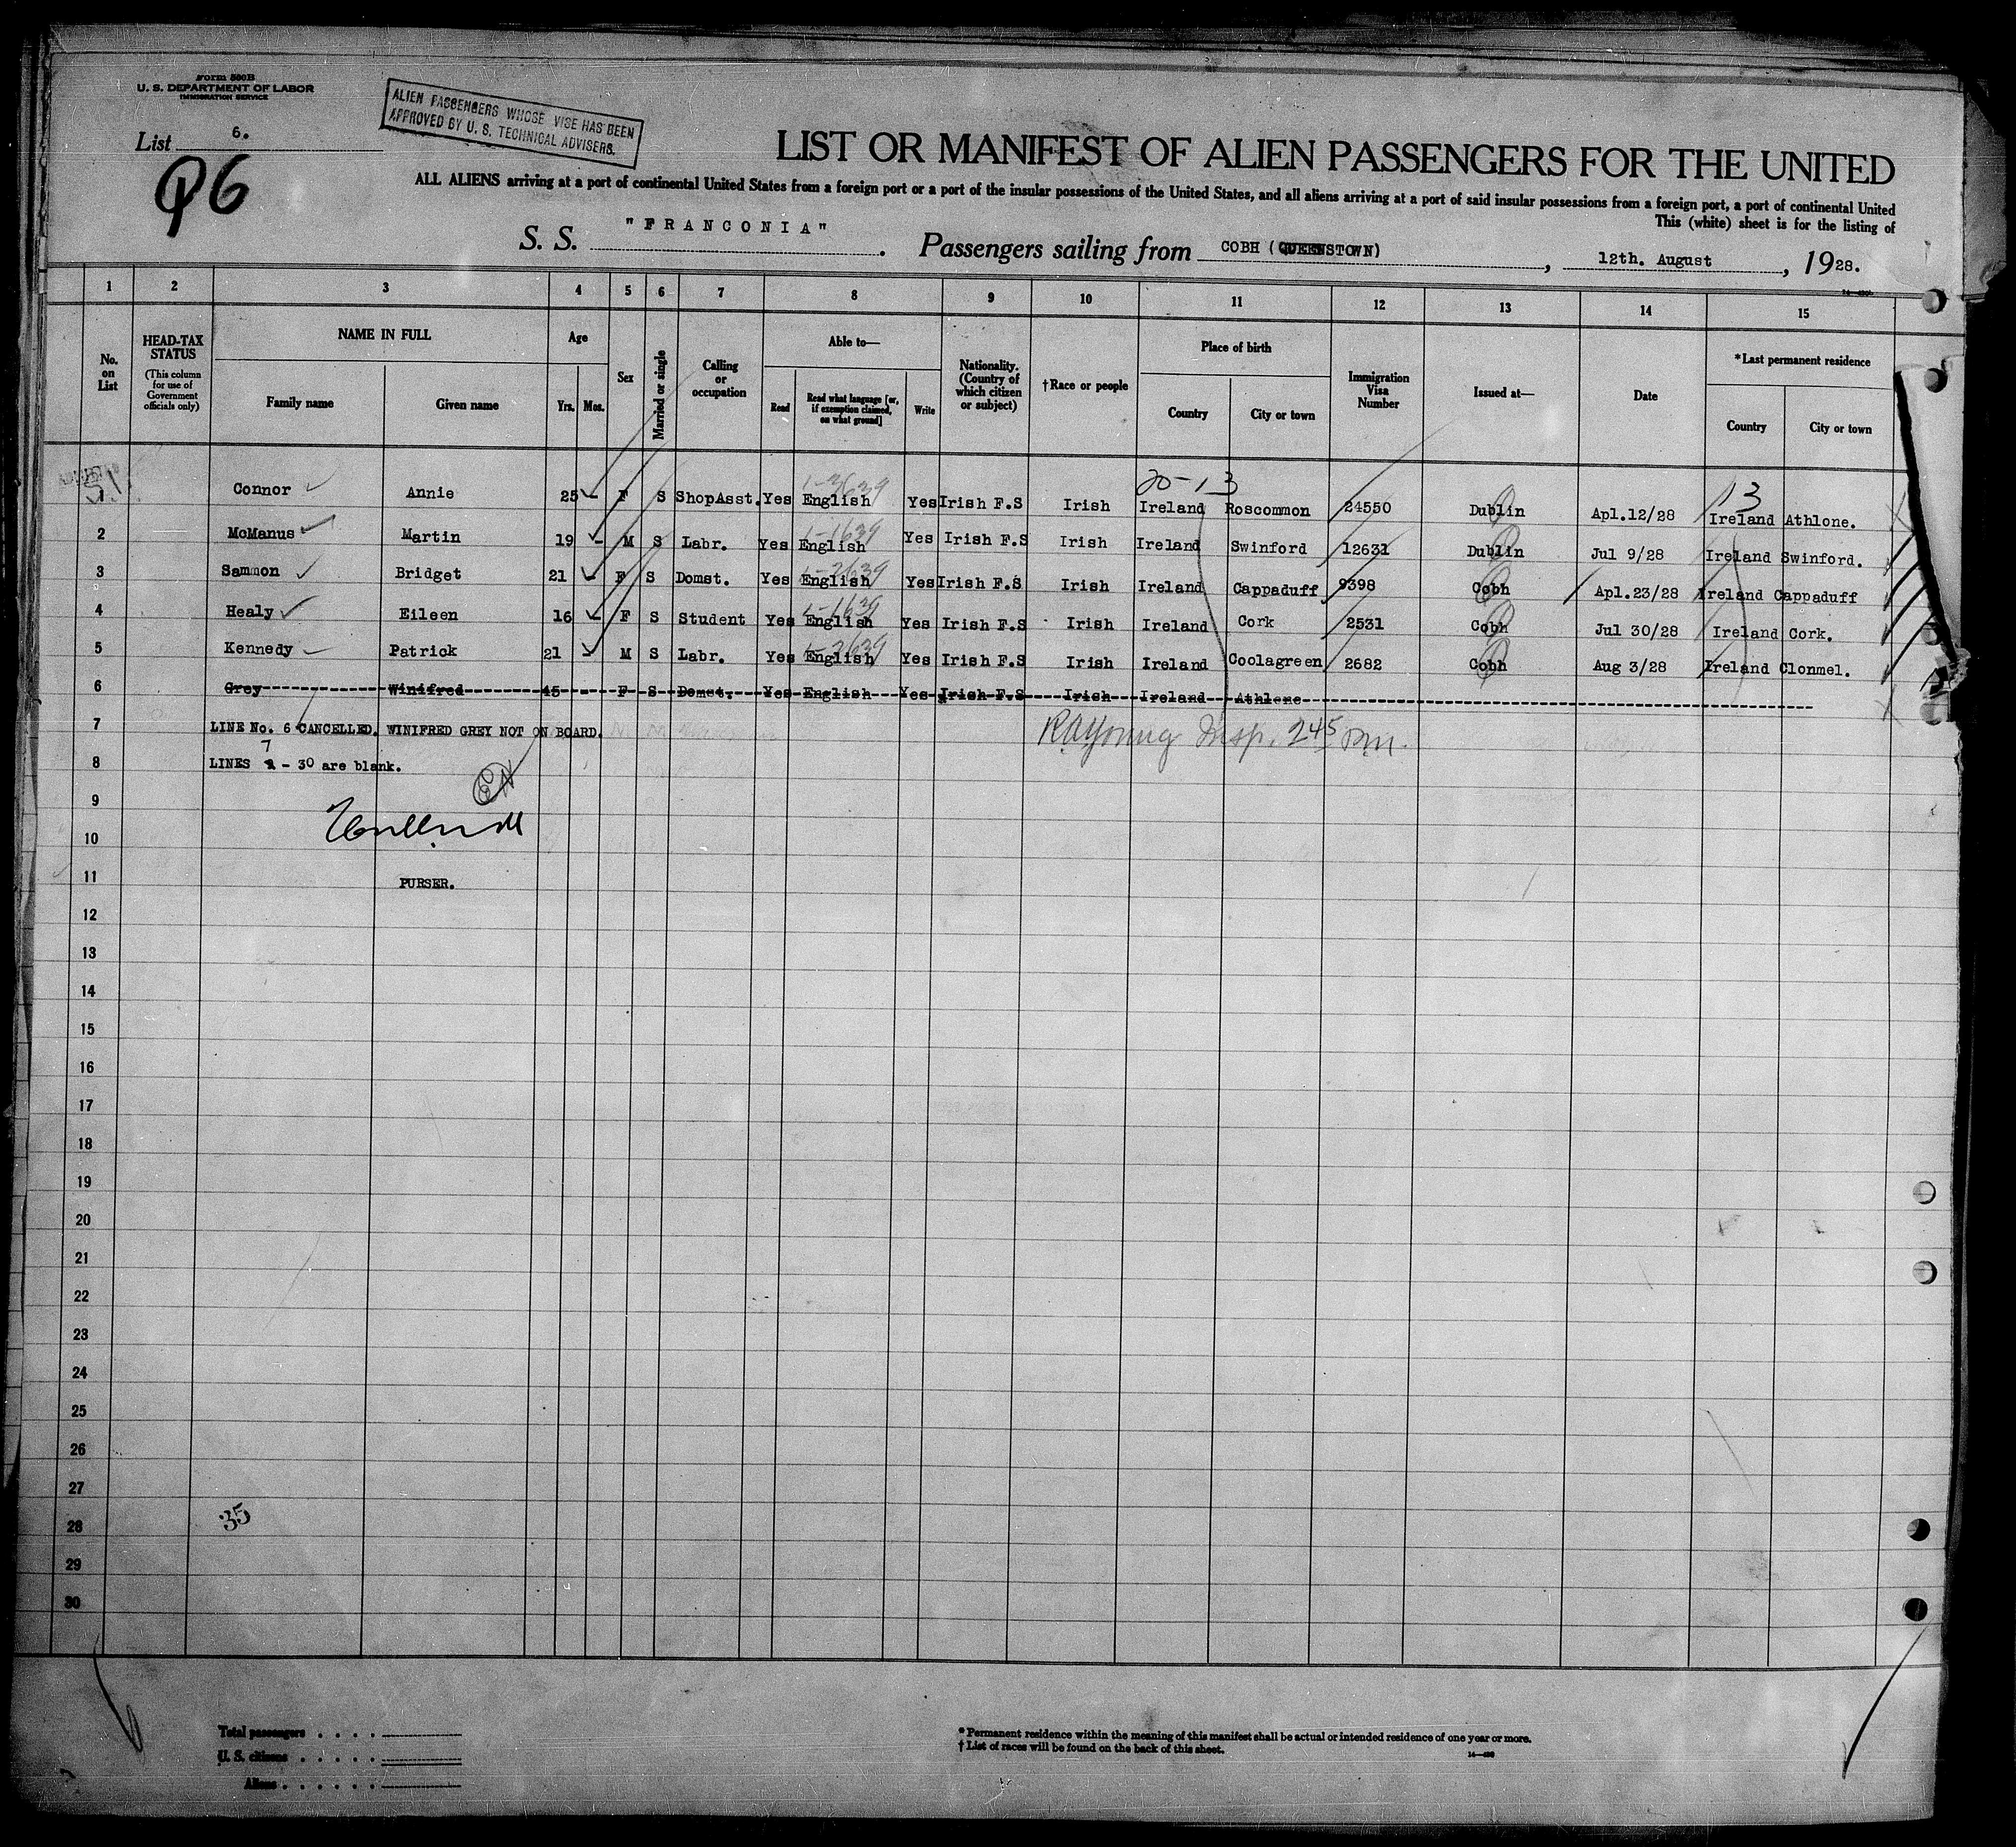 Form 500B
U. S. DEPARTMENT OF LABOR
IMMIGRATION SERVICE
ALIEN PASSENGERS WHOSE VISE HAS BEEN
APPROVED BY U. S. TECHNICAL ADVISERS.
List 6.
96
LIST OR MANIFEST OF ALIEN PASSENGERS FOR THE UNITED
ALL ALIENS arriving at a port of continental United States from a foreign port or a port of the insular possessions of the United States, and all aliens arriving at a port of said insular possessions from a foreign port, a port of continental United
This (white) sheet is for the listing of
S. S. "FRANCONIA". Passengers sailing from COBH (QUEENSTOWN), 12th. August, 1928.
1 2 3 4 5 6 7 8 9 10 11 12 13 14 15
No. on List
HEAD-TAX STATUS
(This column for use of Government officials only)
NAME IN FULL
Family name Given name
Age
Yrs. Mos.
Sex
Married or single
Calling or occupation
Able to—
Read
Read what language [or, if exemption claimed, on what ground]
Write
Nationality. (Country of which citizen or subject)
†Race or people
Place of birth
Country City or town
Immigration Visa Number
Issued at—
Date
*Last permanent residence
Country City or town
20-13
13
1 Connor Annie 25 - F S ShopAsst. Yes English Yes Irish F.S Irish Ireland Roscommon 24550 Dublin Apl.12/28 Ireland Athlone.
2 McManus Martin 19 - M S Labr. Yes English Yes Irish F.S Irish Ireland Swinford 12631 Dublin Jul 9/28 Ireland Swinford.
3 Sammon Bridget 21 - F S Domst. Yes English Yes Irish F.S Irish Ireland Cappaduff 9398 Cobh Apl.23/28 Ireland Cappaduff
4 Healy Eileen 16 - F S Student Yes English Yes Irish F.S Irish Ireland Cork 2531 Cobh Jul 30/28 Ireland Cork.
5 Kennedy Patrick 21 - M S Labr. Yes English Yes Irish F.S Irish Ireland Coolagreen 2682 Cobh Aug 3/28 Ireland Clonmel.
6 Grey Winifred 45 - F S Domst. Yes English Yes Irish F.S Irish Ireland Athlone
7 LINE No. 6 CANCELLED. WINIFRED GREY NOT ON BOARD. RAYoung Insp. 245 pm.
8 LINES 7 - 30 are blank.
9
10
11 PURSER.
12
13
14
15
16
17
18
19
20
21
22
23
24
25
26
27
28 35
29
30
Total passengers
U. S. citizens
Aliens
*Permanent residence within the meaning of this manifest shall be actual or intended residence of one year or more.
†List of races will be found on the back of this sheet.